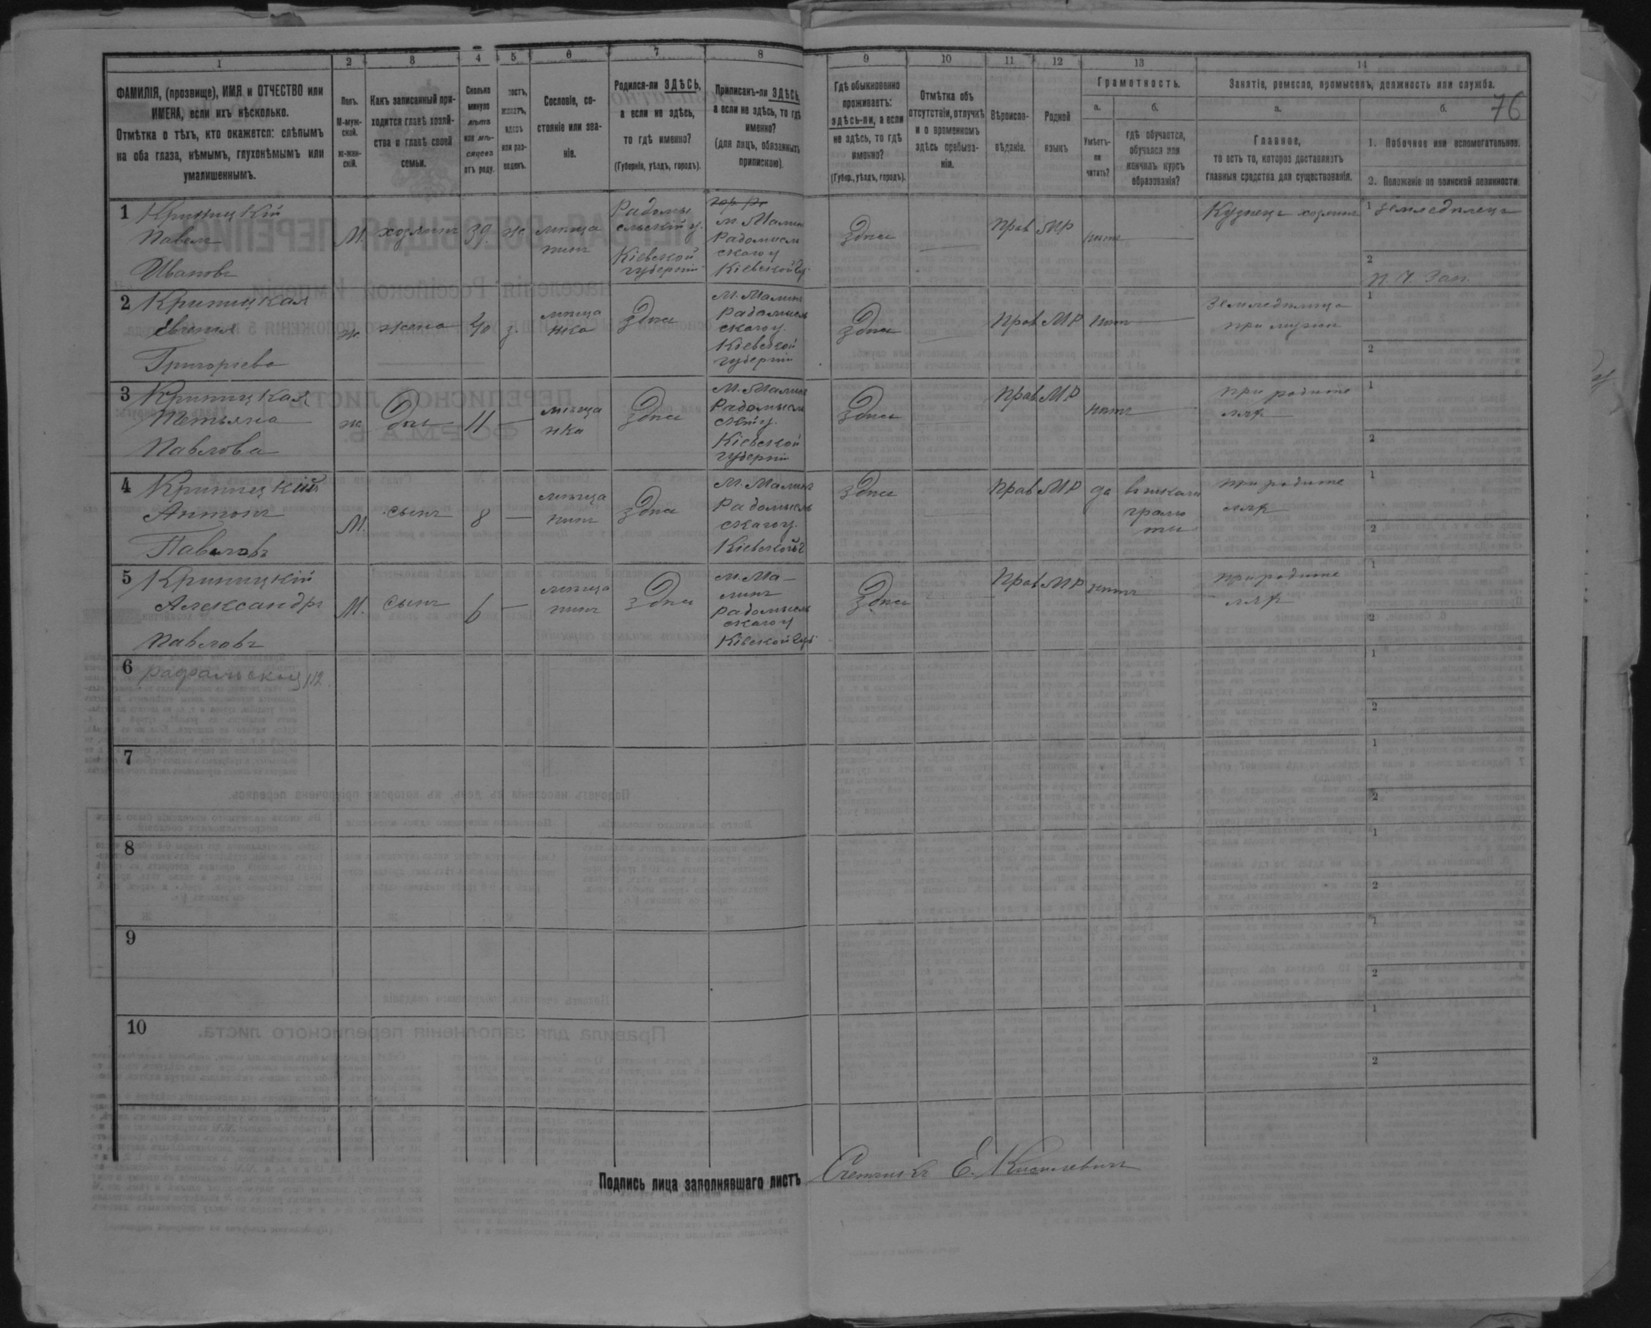 1
2
3
4
5
6
7
8
9
10
11
12
13
14
ФАМИЛІЯ, (прозвище), ИМЯ и ОТЧЕСТВО или
ИМЕНА, если ихъ нѣсколько.
Отмѣтка о тѣхъ, кто окажется: слѣпымъ
на оба глаза, нѣмымъ, глухонѣмымъ или
умалишеннымъ.
Полъ.
М-муж-
ской.
Ж-жен-
скій.
Какъ записанный при-
ходится главѣ хозяй-
ства и главѣ своей
семьи.
Сколько
минуло
лѣтъ
или мѣ-
сяцевъ
отъ роду.
Сословіе, со-
стояніе или зва-
ніе.
Родился-ли ЗДѢСЬ,
а если не здѣсь,
то гдѣ именно?
(Губернія, уѣздъ, городъ).
Приписанъ-ли ЗДѢСЬ,
а если не здѣсь, то гдѣ
именно?
(для лицъ, обязанныхъ
припискою).
Гдѣ обыкновенно
проживаетъ:
здѣсь-ли, а если
не здѣсь, то гдѣ
именно?
(Губер., уѣздъ, городъ).
Отмѣтка объ
отсутствіи, отлучкѣ
и о временномъ
здѣсь пребыва-
ніи.
Вѣроиспо-
вѣданіе.
Родной
языкъ
Грамотность.
а.
Умѣетъ-
ли
читать?
б.
гдѣ обучается,
обучался или
кончилъ курсъ
образованія?
Занятіе, ремесло, промыселъ, должность или служба.
76
а.
Главное,
то есть то, которое доставляетъ
главныя средства для существованія.
б.
1. Побочное или вспомогательное.
2. Положеніе по воинской повинности.
1 Криницкій
Павелъ
Ивановъ
М. хозяинъ 39 ж мѣща
нинъ
Радомы
сльскій у.
Кіевской
губерніи
м. Малинъ
Радомысль
скаго у
Кіевской Гу.
Здѣсь
Прав МР нѣтъ
Кузнецъ хозяинъ
1 Земледѣлецъ
2
2 Криницкая
Григорьева
ж. жена 40 з. мѣща
нка
Здѣсь
М. Малинъ
Радомысль
скаго у.
Кіевской
губерніи
здѣсь
Прав МР нѣтъ
при мужѣ
1
2
3 Криницкая
Татьяна
Павлова
ж дочь 11 мѣща
нка
Здѣсь
М. Малинъ
Радомысль
скій у.
Кіевской
губерніи
Здѣсь
Прав МР нѣтъ
при родите
ляхъ
1
2
4 Криницкій
Антонъ
Павловъ
М. сынъ 8 мѣща
нинъ
Здѣсь
М. Малинъ
Радомысль
скаго у.
Кіевской г
здѣсь
Прав МР да в школѣ
грамо
ты
при родите
ляхъ
1
2
5 Криницкій
Александръ
Павловъ
М. сынъ 6 мѣща
нинъ
здѣсь
м. Ма-
линъ
Радомысль
скаго у
Кіевской Губ
Здѣсь
Прав МР нѣтъ
при родите
ляхъ
1
2
6
1
2
7
1
2
8
1
2
9
1
2
10
1
2
Подпись лица заполнявшаго листъ Счетчикъ Е.